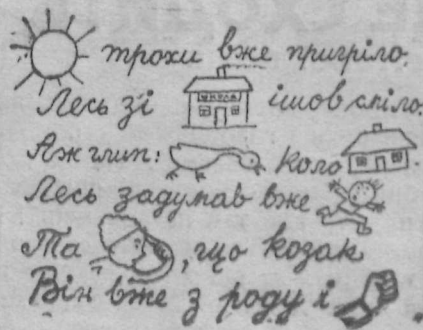 трохи вже пригріло.
Лесь зі ШКОЛА ішов сміло.
Аж глип: коло
Лесь задумав вже
Та , що козак
Він вже з роду і .